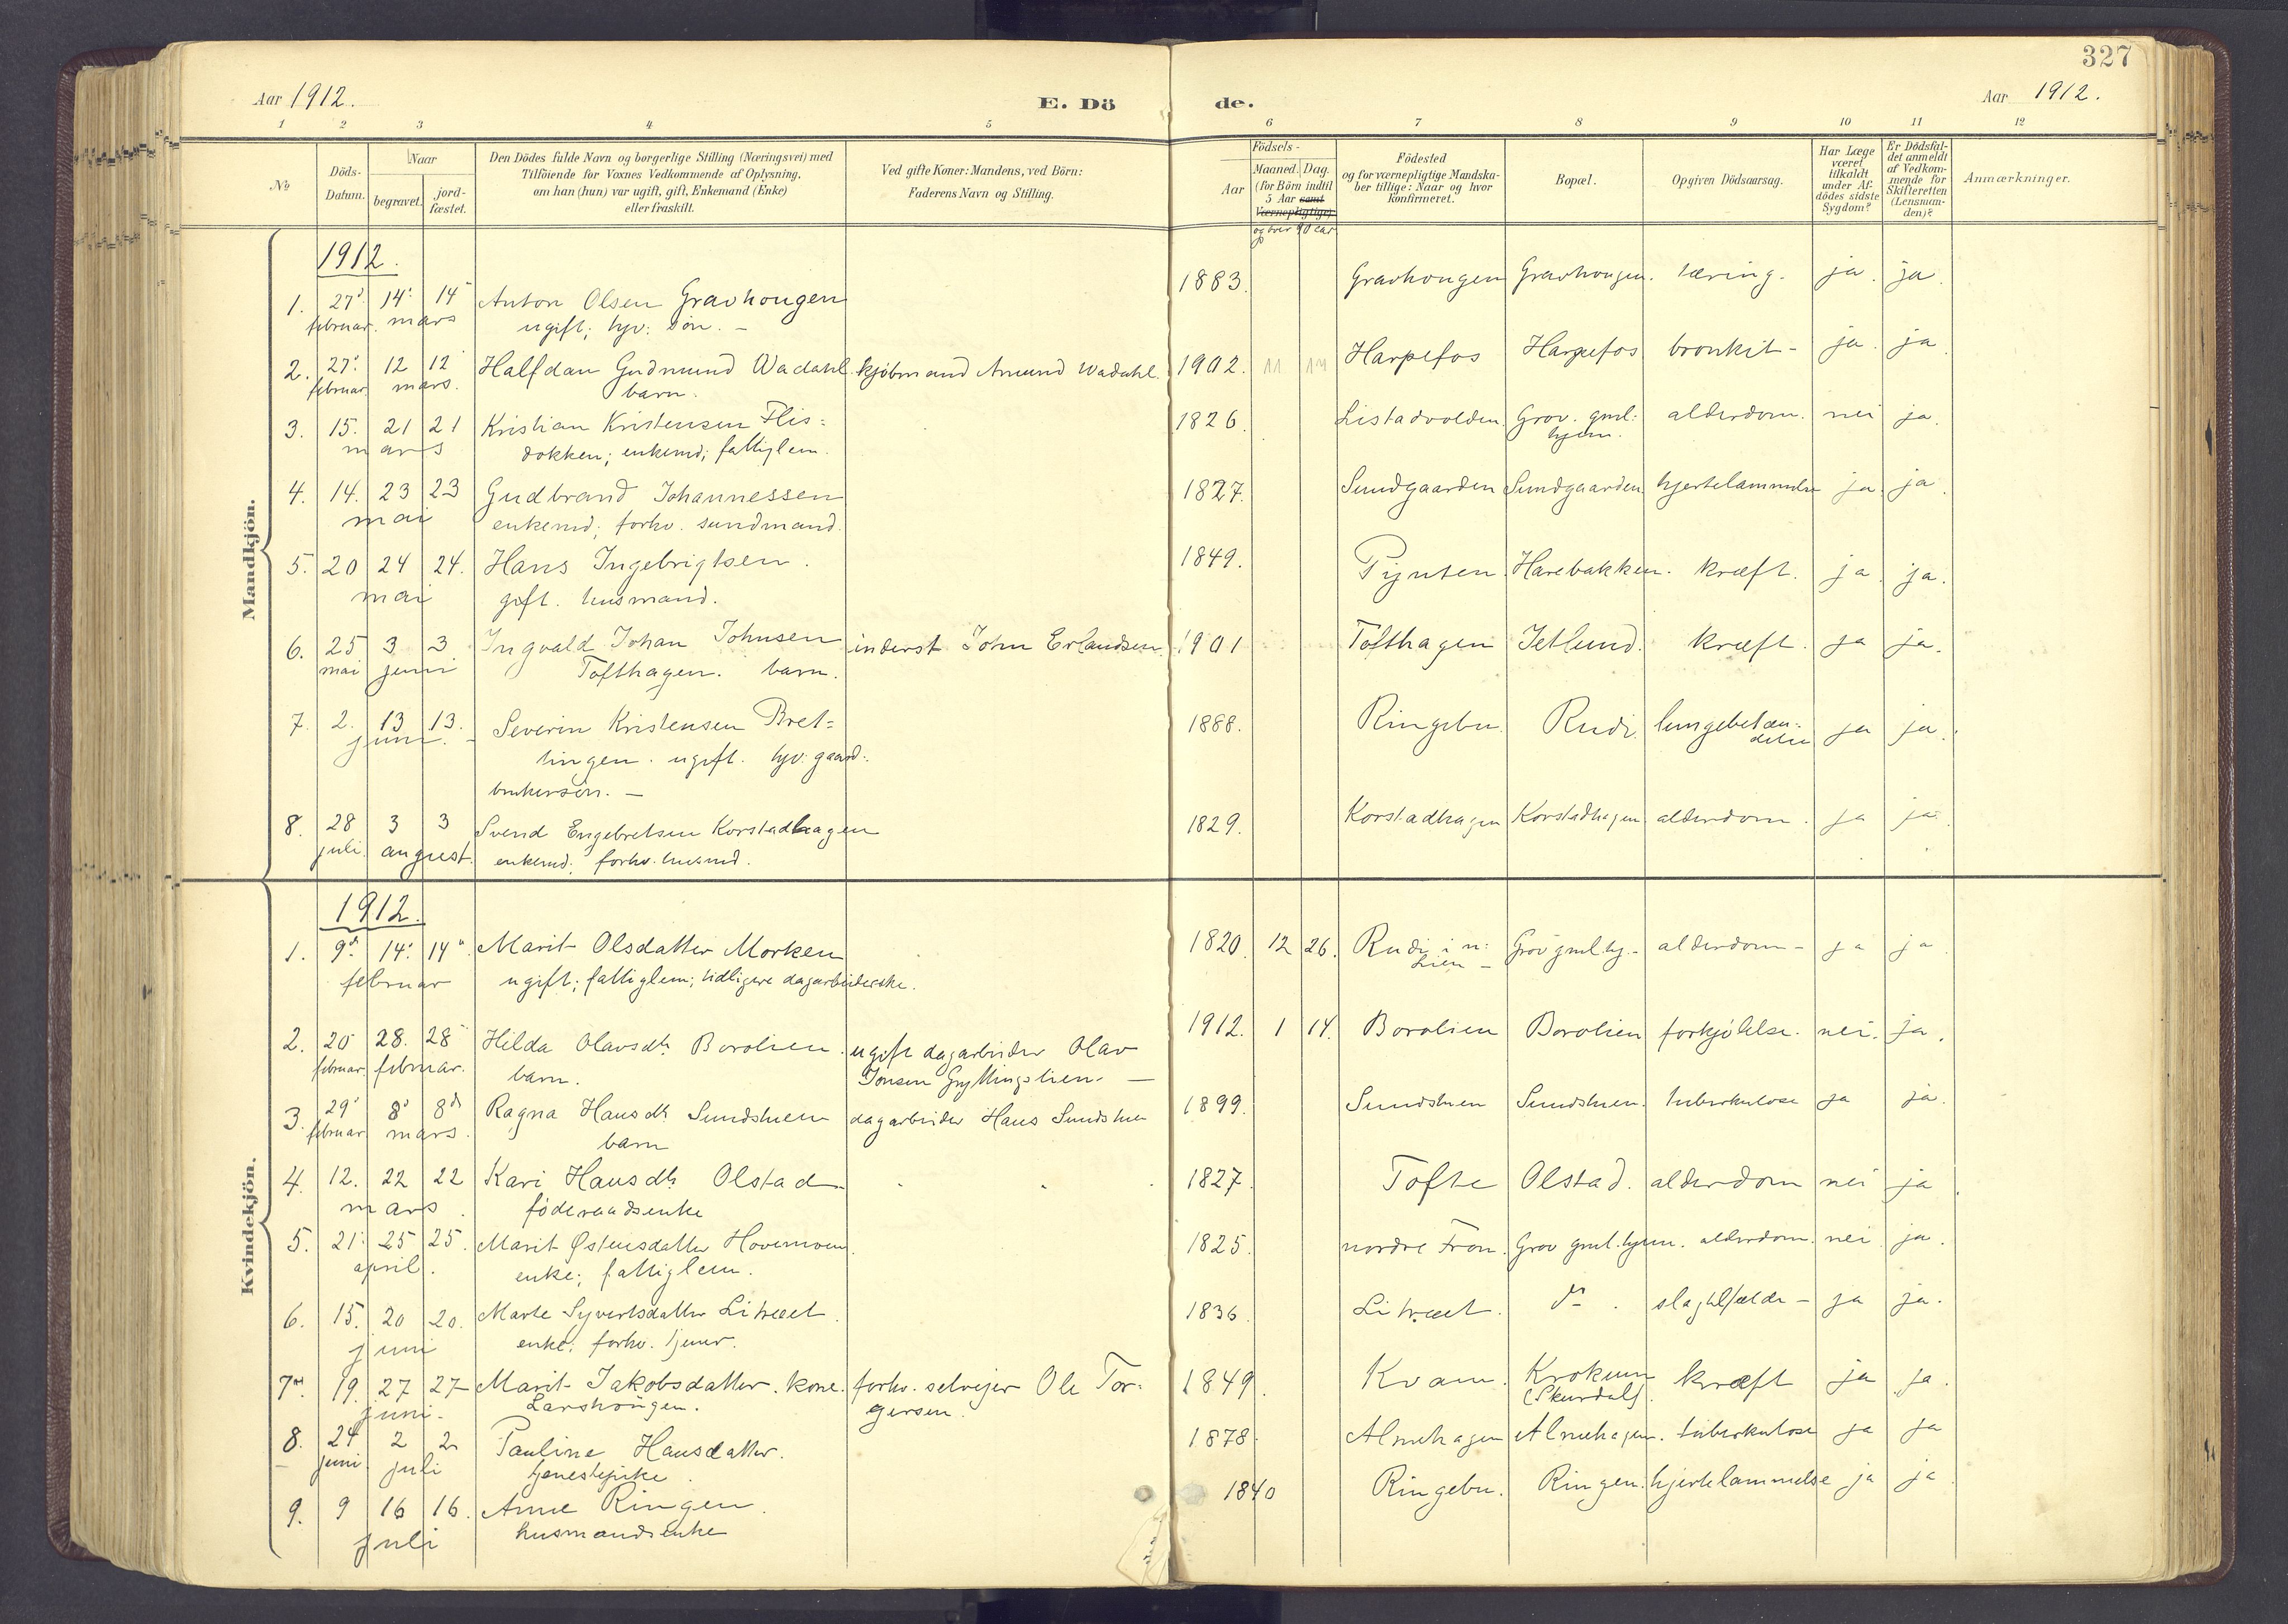 327
Aar 1912.
E. Dö de.
Aar 1912.
1 2 3 4 5 6 7 8 9 10 11 12
No
Döds-Datum.
Naar
begravet.
jord-fæstet.
Den Dödes fulde Navn og borgerlige Stilling (Næringsvei) med
Tilföiende for Voxnes Vedkommende af Oplysning.
om han (hun) var ugift, gift, Enkemand (Enke)
eller fraskilt.
Ved gifte Koner: Mandens, ved Börn:
Faderens Navn og Stilling.
Födsels-
Aar
Maaned. Dag.
(for Börn indtil
5 Aar samt
Værnepligtige)
og over 90 aar
Födested
og for værnepligtige Mandska-
ber tillige: Naar og hvor
konfirmeret.
Bopæl.
Opgiven Dödsaarsag.
Har Læge
været
tilkaldt
under Af-
dödes sidste
Sygdom?
Er Dödsfal-
det anmeldt
af Vedkom-
mende for
Skifteretten
(Lensman-
den)?
Anmærkninger.
Mandkjön.
1912.
1. 27. 14. 14 Anton Olsen Gravhougen 1883. Gravhougen Gravhougen. tæring. ja. ja.
februar. mars ugift; hjv: søn. –
2. 27. 12 12 Halfdan Gudmund Wadahl. kjöbmand Amund Wadahl. 1902. 11 Harpefos Harpefos bronkit – ja. ja
februar mars. barn.
3. 15. 21 21 Kristian Kristensen Flis= 1826. Listadvolden. Grov. gml. hjem. alderdom. nei ja.
mars dokken; enkemd; fattiglem.
4. 14. 23 23 Gudbrand Johannessen 1827. Sundgaarden Sundgaarden hjertelammelse ja ja.
mai enkemd; forhv. sundmand.
5. 20 24 24. Hans Ingebrigtsen. 1849. Pynten. Harebakken. kræft. ja. ja.
mai gift. husmand.
6. 25 3 3 Ingvald Johan Johnsen inderst John Erlandsen. 1901 Tofthagen Jetlund. kræft. ja ja.
mai juni Tofthagen. barn.
7. 2. 13 13. Severin Kristensen Bret= 1888. Ringebu Rudi. lungebetæn-delse ja ja.
juni. tingen. ugift. hjv: gaard-
brukersön. –
8. 28 3 3 Svend Engebretsen Korstadhagen 1829. Korstadhagen Korstadhagen alderdom. ja ja.
juli. august. enkemd; forhv. husmd.
Kvindekjön.
1912.
1. 9. 14. 14 Marit Olsdatter Morken 1820. 12 26. Rudi i n: Lien – Grov gml. hj. – alderdom – ja ja
februar ugift; fattiglem; tidligere dagarbeiderske.
2. 20 28. 28 Hilda Olavsdt. Borolien. ugift dagarbeider Olav 1912. 1 14. Borolien Borolien forkjölelse. nei. ja.
februar. februar. barn. Jonsen Gryttingslien. –
3. 29 8 8 Ragna Hansdt. Sundstuen dagarbeider Hans Sundstuen 1899. Sundstuen Sundstuen. tuberkulose ja ja.
februar mars. barn
4. 12. 22 22 Kari Hansdt. Olstad 1827. Tofte Olstad. alderdom nei ja
mars. föderaadsenke
5. 21. 25 25. Marit Østensdatter Hovemoen 1825. nordre Fron. Grov gml. hjem. alderdom. nei. ja.
april. enke; fattiglem.
6. 15. 20 20. Marte Syvertsdatter Litræet 1836. Litræet. do. slagtilfælde – ja ja.
juni enke; forhv. tjener.
7. 19. 27 27 Marit Jakobsdatter. kone. forhv. selveier Ole Tor- 1849. Kvam. Krokum (Skurdal). kræft ja ja.
juni. Larshougen. gersen.
8. 24 2 2 Pauline Hansdatter. 1878. Almehagen Almehagen. tuberkulose ja ja
juni juli tjenestepike.
9. 9 16 16. Anne Ringen. 1840 Ringebu. Ringen. hjertelammelse ja ja
juli husmandsenke